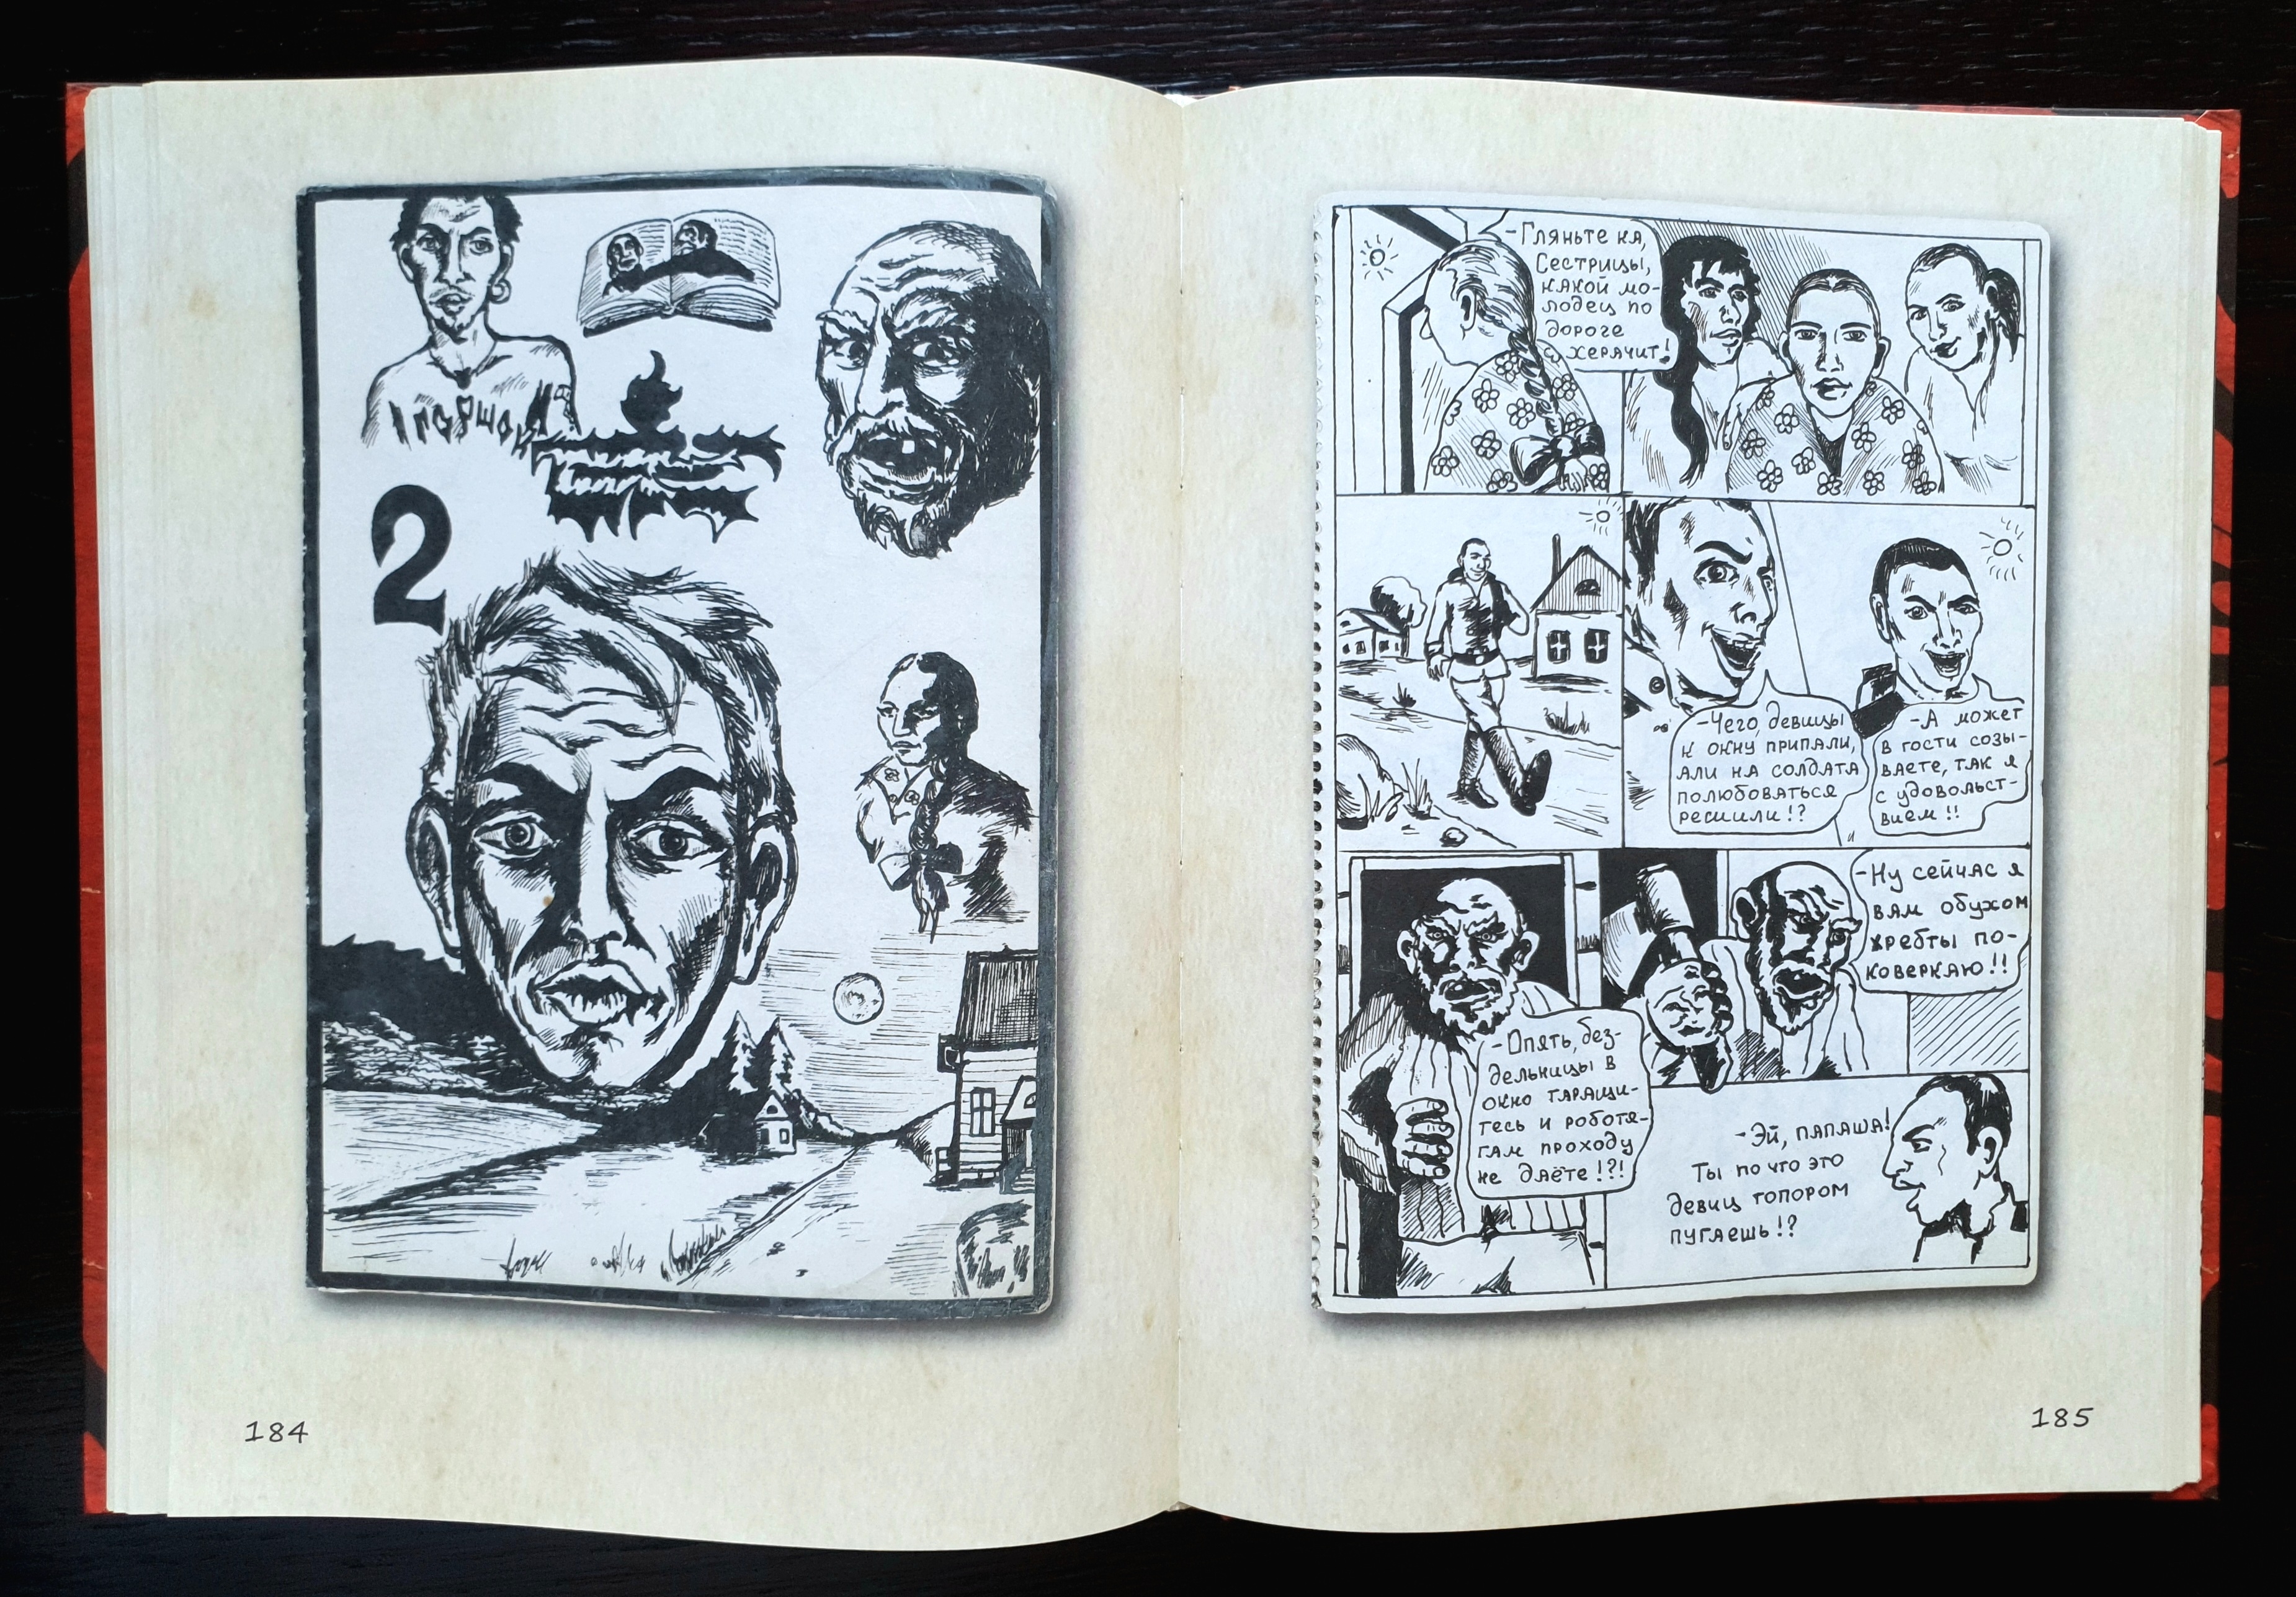 2
184
-Гляньте ка,
Сестрицы,
какой мо-
лодец по
дороге
херачит!
-Чего, девицы
к окну припали,
али на солдата
полюбоваться
решили!?
-А может
в гости созы-
ваете, так я
с удовольст-
вием!!
-Опять, без-
дельницы в
окно таращи-
тесь и роботя-
гам проходу
не даёте!?!
-Ну сейчас я
вам обухом
хребты по-
коверкаю!!
-Эй, папаша!
Ты по что это
девиц топором
пугаешь!?
185